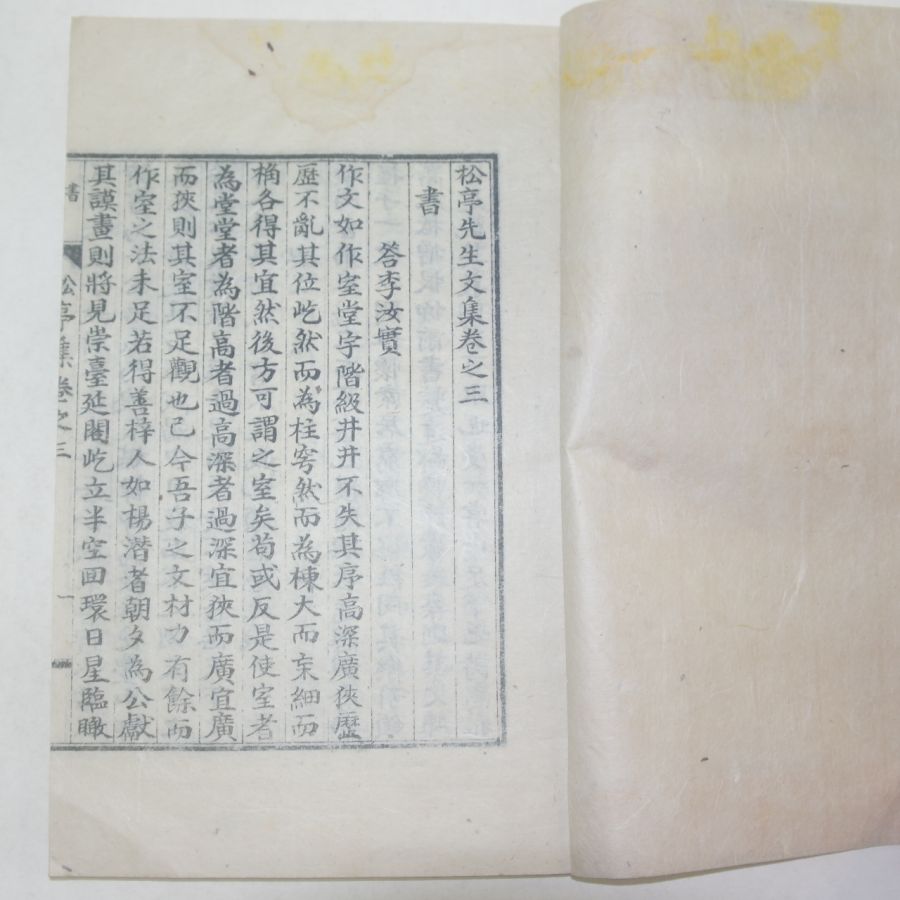 松亭先生文集卷之三
書
答李汝實
作文如作室堂宇階級井井不失其序高深廣狹歷
歷不亂其位屹然而為柱穹然而為棟大而宋細而
桷各得其宜然後方可謂之室矣苟或反是使室者
為堂堂者為階高者過高深者過深宜狹而廣宜廣
而狹則其室不足觀也已今吾子之文材力有餘而
作室之法未足若得善梓人如楊潛者朝夕為公獻
其謨畫則將見崇臺延閣屹立半空回環日星臨瞰
書
松亭集卷之三
一